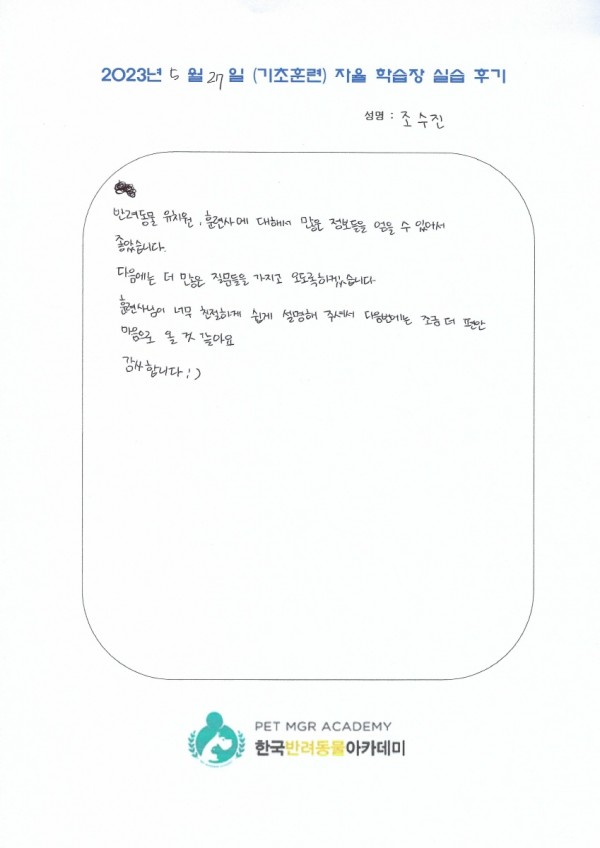 2023년 5월 27일 (기초훈련) 자율 학습장 실습 후기
성명 : 조수진
반려동물 유치원, 훈련사에 대해서 많은 정보들을 얻을 수 있어서
좋았습니다.
다음에는 더 많은 질문들을 가지고 오도록하겠습니다.
훈련사님이 너무 친절하게 쉽게 설명해 주셔서 다음번에는 조금 더 편안
마음으로 올 것 같아요
감사합니다 :)
PET MGR ACADEMY
한국반려동물아카데미